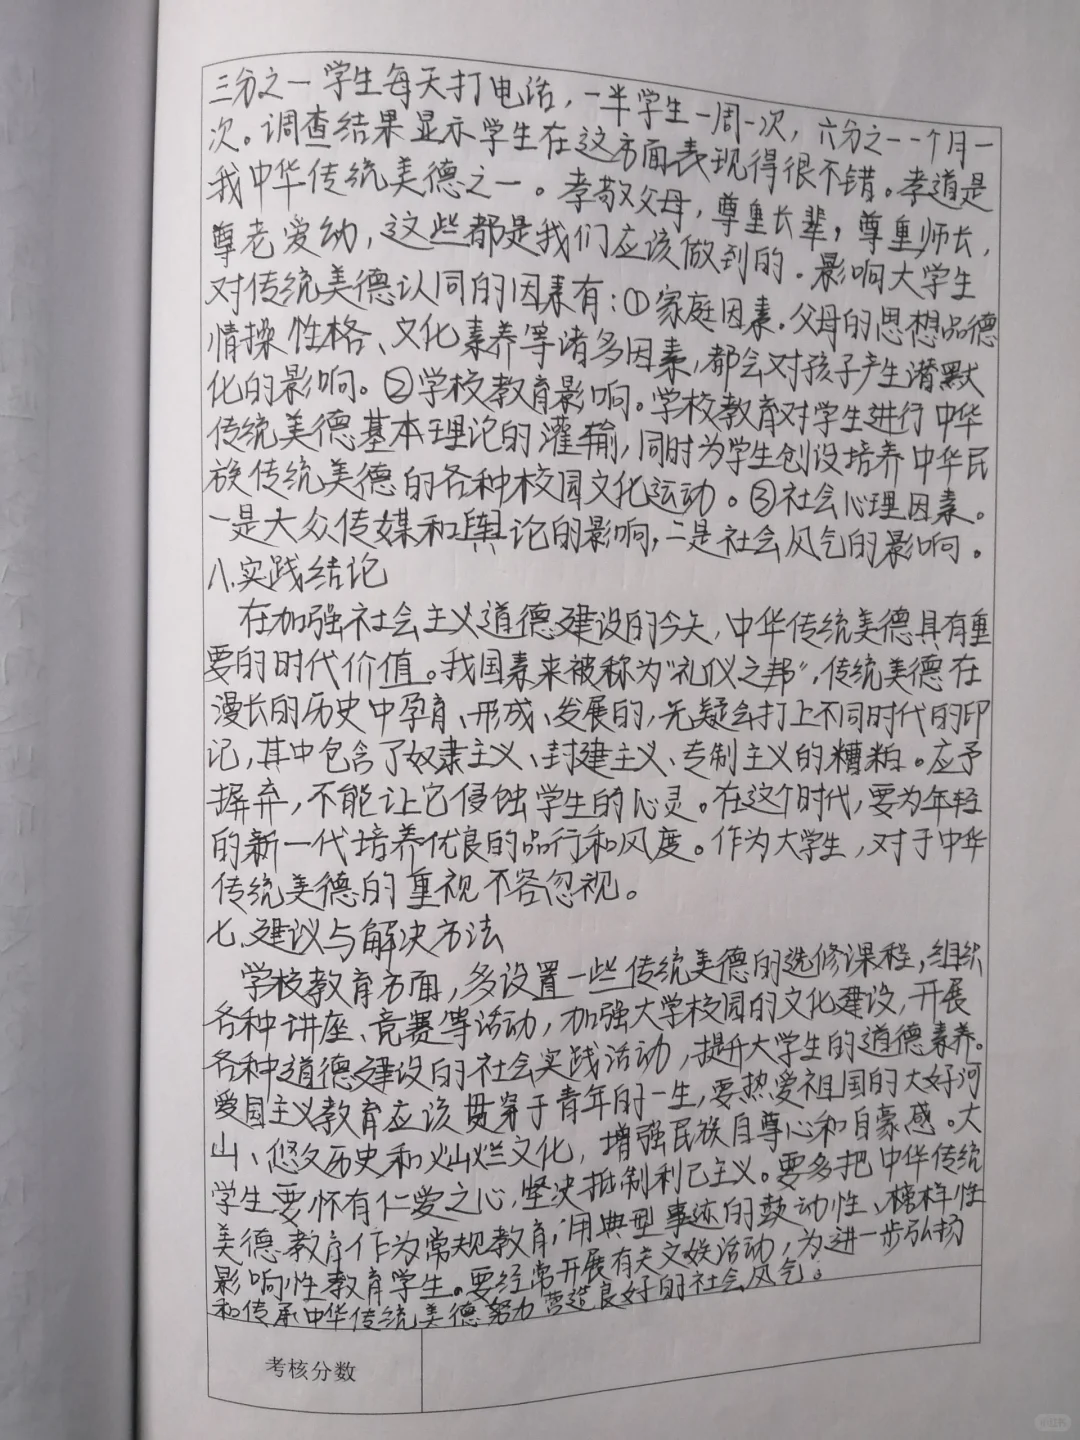 三分之一学生每天打电话，一半学生一周一次，六分之一一个月一
次。调查结果显示学生在这方面表现得很不错。孝道是
我中华传统美德之一。孝敬父母，尊重长辈，尊重师长，
尊老爱幼，这些都是我们应该做到的。影响大学生
对传统美德认同的因素有：①家庭因素.父母的思想品德
情操性格、文化素养等诸多因素，都会对孩子产生潜默
化的影响。②学校教育影响。学校教育对学生进行中华
传统美德基本理论的灌输，同时为学生创设培养中华民
族传统美德的各种校园文化运动。③社会心理因素。
一是大众传媒和舆论的影响，二是社会风气的影响。
八.实践结论
在加强社会主义道德建设的今天，中华传统美德具有重
要的时代价值。我国素来被称为“礼仪之邦”，传统美德在
漫长的历史中孕育、形成、发展的，无疑会打上不同时代的印
记，其中包含了奴隶主义、封建主义、专制主义的糟粕。应予
摒弃，不能让它侵蚀学生的心灵。在这个时代，要为年轻
的新一代培养优良的品行和风度。作为大学生，对于中华
传统美德的重视不容忽视。
七.建议与解决方法
学校教育方面，多设置一些传统美德的选修课程，组织
各种讲座、竞赛等活动，加强大学校园的文化建设，开展
各种道德建设的社会实践活动，提升大学生的道德素养。
爱国主义教育应该贯穿于青年的一生，要热爱祖国的大好河
山、悠久历史和灿烂文化，增强民族自尊心和自豪感。大
学生要怀有仁爱之心，坚决抵制利己主义。要多把中华传统
美德教育作为常规教育，用典型事迹的鼓动性、榜样性
影响性教育学生。要经常开展有关文娱活动，为进一步弘扬
和传承中华传统美德努力营造良好的社会风气。
考核分数